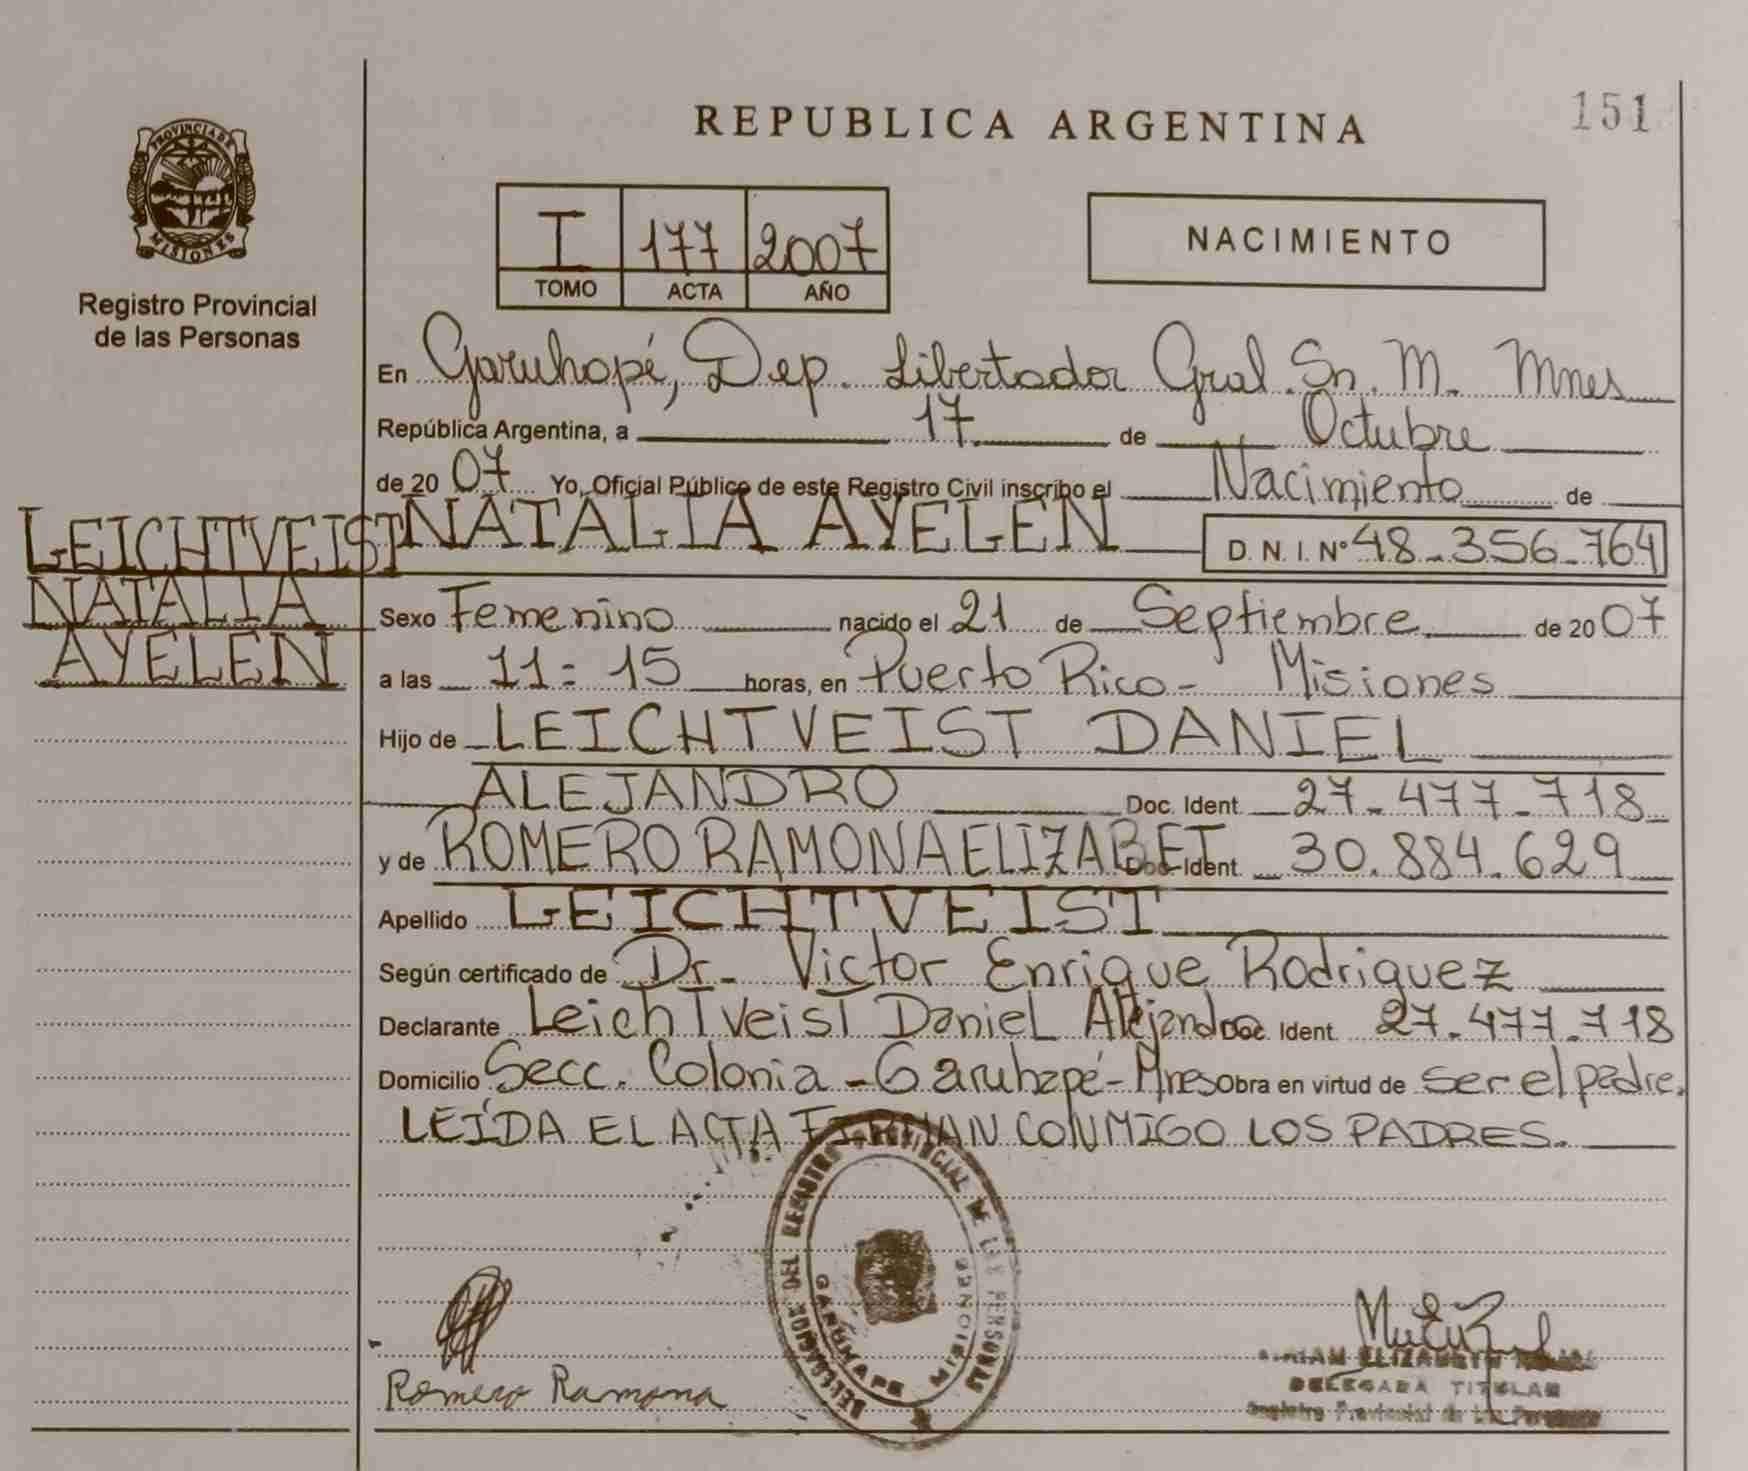 REPUBLICA ARGENTINA
151
PROVINCIA DE
MISIONES
Registro Provincial
de las Personas
I 177 2007
TOMO ACTA AÑO
NACIMIENTO
En Garuhapé, Dep. Libertador Gral. Sn. M. Mnes
República Argentina, a 17 de Octubre
de 20 07 Yo, Oficial Público de este Registro Civil inscribo el Nacimiento de
LEICHTVEIST
NATALIA
AYELEN
NATALIA AYELEN D. N. I. Nº 48-356-764
Sexo Femenino nacido el 21 de Septiembre de 20 07
a las 11:15 horas, en Puerto Rico - Misiones
Hijo de LEICHTVEIST DANIEL
ALEJANDRO Doc. Ident. 27-477-718
y de ROMERO RAMONA ELIZABET Doc. Ident. 30.884.629
Apellido LEICHTVEIST
Según certificado de Dr. Victor Enrique Rodriguez
Declarante LeichTveisT Daniel Alejandro Doc. Ident. 27.477.718
Domicilio Secc. Colonia - Garuhapé - Mnes Obra en virtud de ser el padre.
LEÍDA EL ACTA FIRMAN CONMIGO LOS PADRES.
DEL REGISTRO PROVINCIAL DE LAS PERSONAS
GARUHAPE MISIONES
Romero Ramona
MIRIAM ELIZABETH
DELEGADA TITULAR
Registro Provincial de las Personas